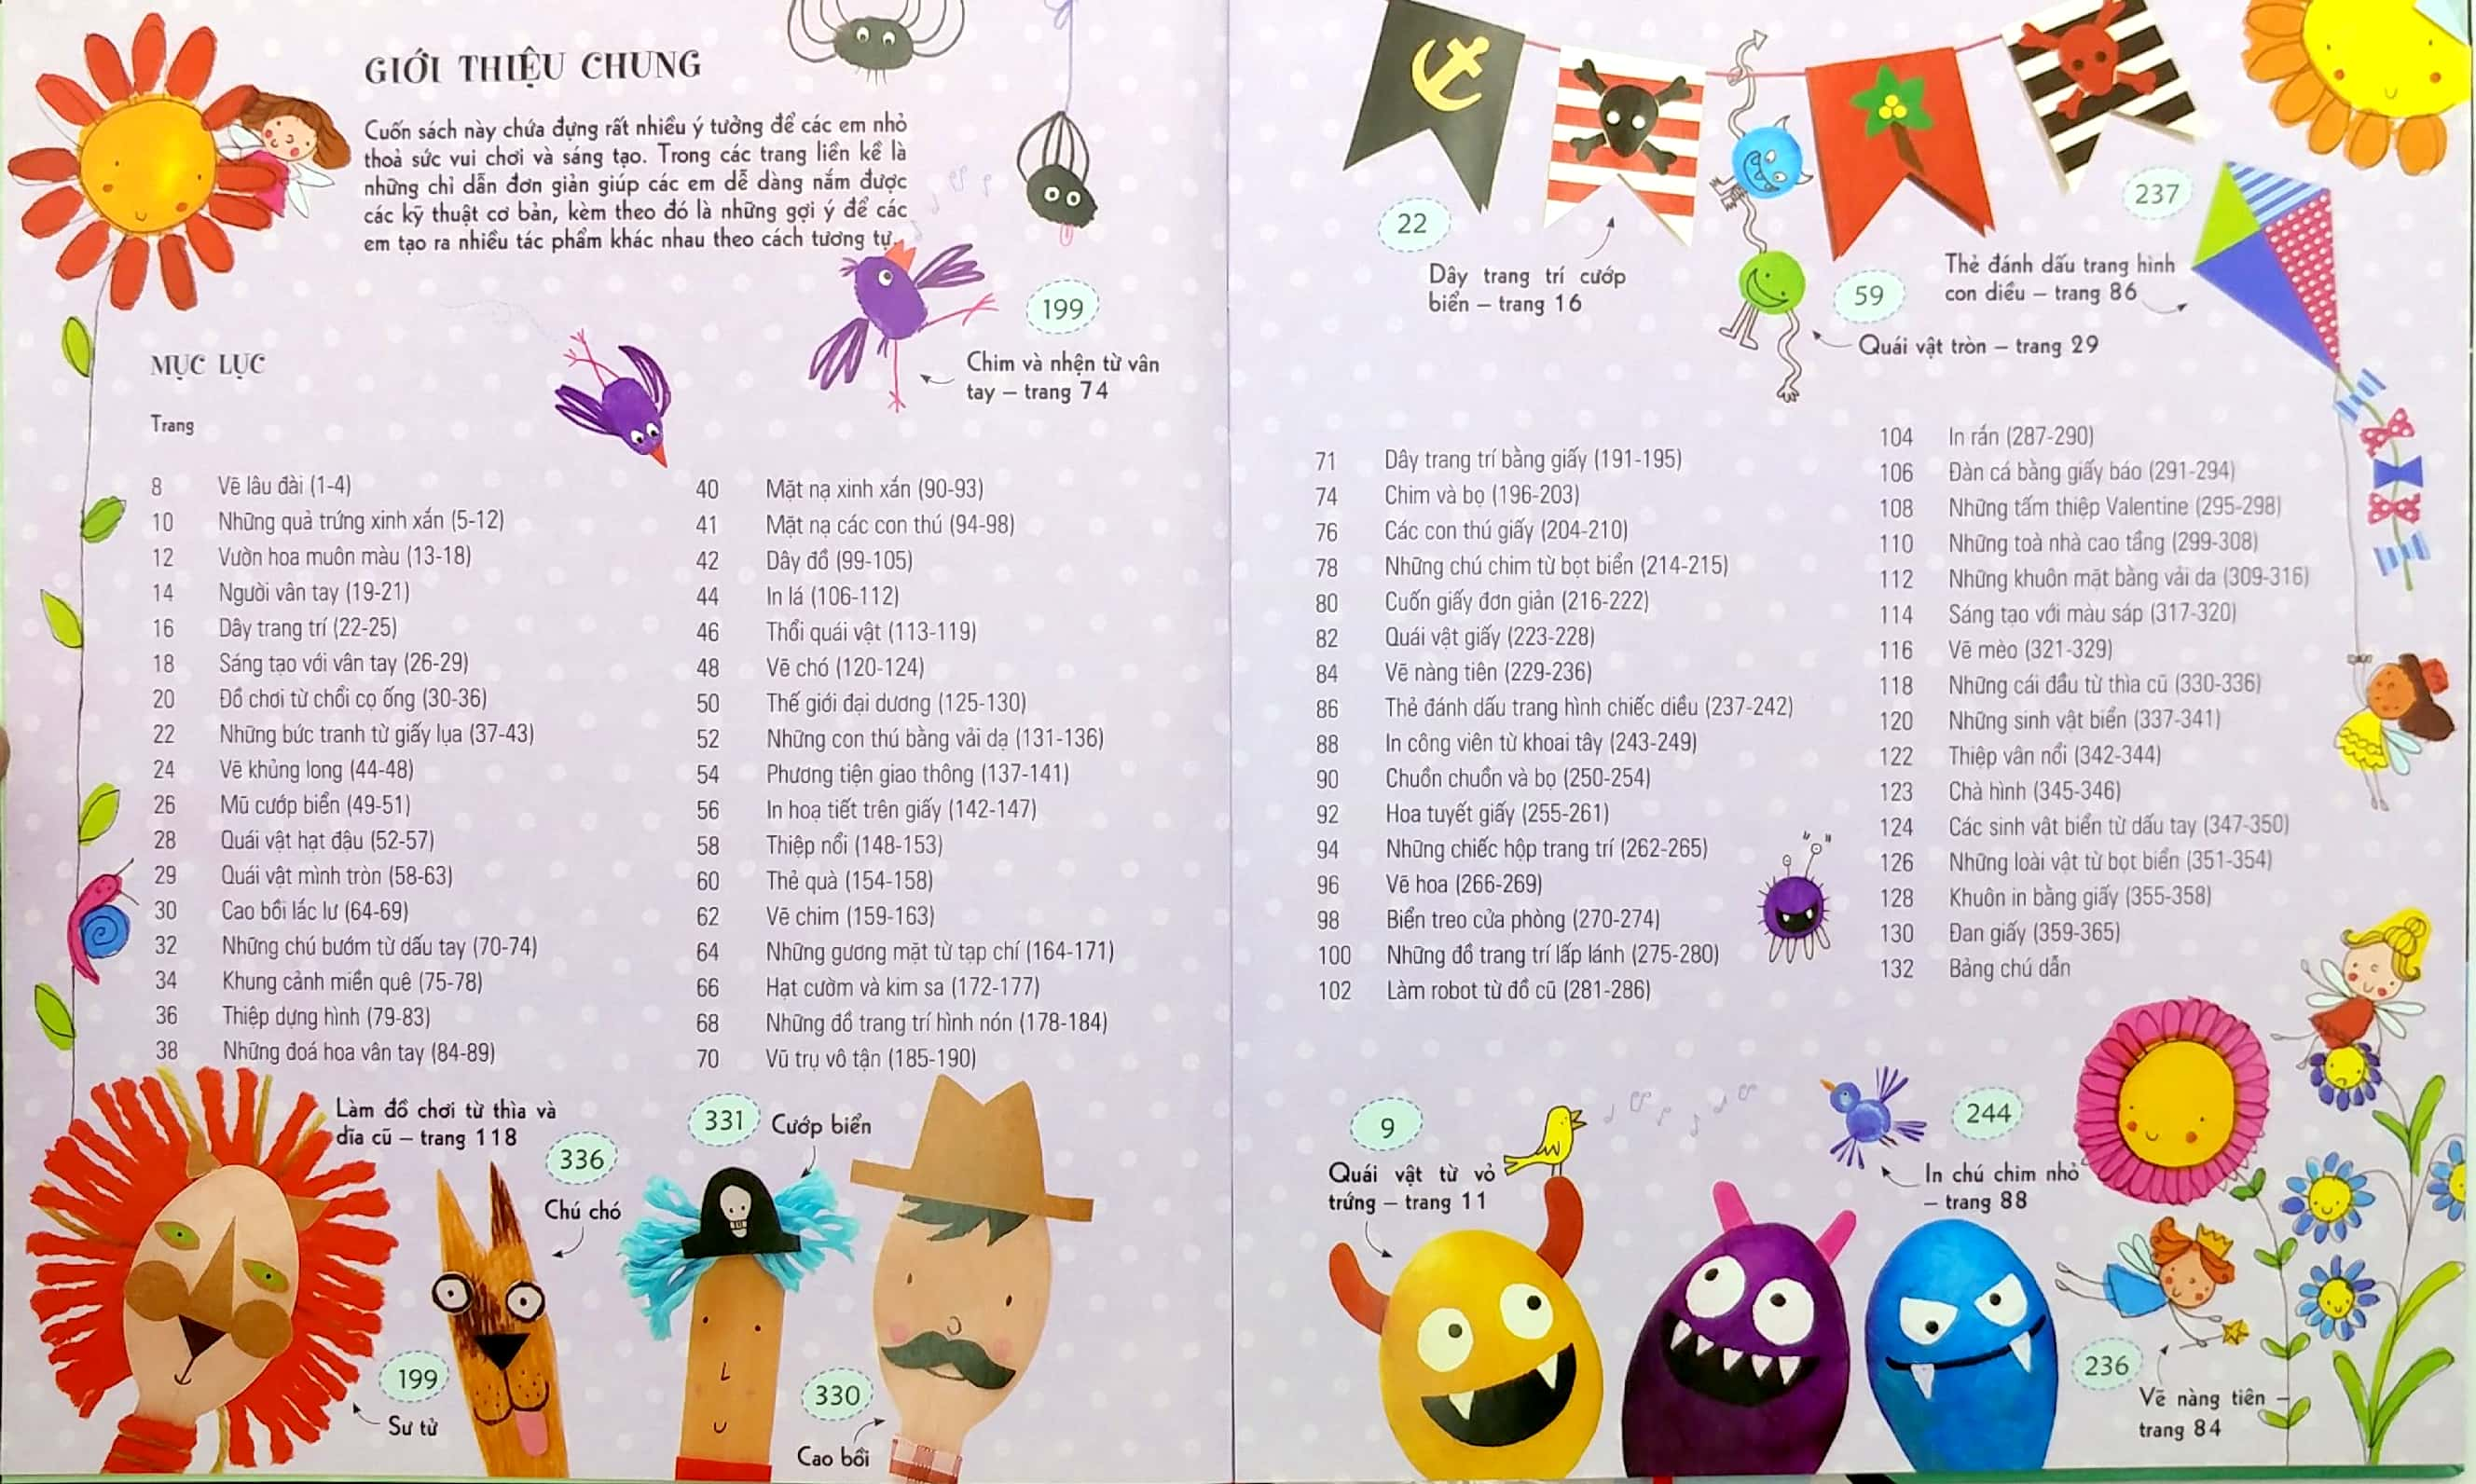 GIỚI THIỆU CHUNG
Cuốn sách này chứa đựng rất nhiều ý tưởng để các em nhỏ
thoả sức vui chơi và sáng tạo. Trong các trang liền kề là
những chỉ dẫn đơn giản giúp các em dễ dàng nắm được
các kỹ thuật cơ bản, kèm theo đó là những gợi ý để các
em tạo ra nhiều tác phẩm khác nhau theo cách tương tự.
199
Chim và nhện từ vân
tay – trang 74
MỤC LỤC
Trang
8 Vẽ lâu đài (1-4)
10 Những quả trứng xinh xắn (5-12)
12 Vườn hoa muôn màu (13-18)
14 Người vân tay (19-21)
16 Dây trang trí (22-25)
18 Sáng tạo với vân tay (26-29)
20 Đồ chơi từ chổi cọ ống (30-36)
22 Những bức tranh từ giấy lụa (37-43)
24 Vẽ khủng long (44-48)
26 Mũ cướp biển (49-51)
28 Quái vật hạt đậu (52-57)
29 Quái vật mình tròn (58-63)
30 Cao bồi lắc lư (64-69)
32 Những chú bướm từ dấu tay (70-74)
34 Khung cảnh miền quê (75-78)
36 Thiệp dựng hình (79-83)
38 Những đoá hoa vân tay (84-89)
40 Mặt nạ xinh xắn (90-93)
41 Mặt nạ các con thú (94-98)
42 Dây đồ (99-105)
44 In lá (106-112)
46 Thổi quái vật (113-119)
48 Vẽ chó (120-124)
50 Thế giới đại dương (125-130)
52 Những con thú bằng vải dạ (131-136)
54 Phương tiện giao thông (137-141)
56 In hoạ tiết trên giấy (142-147)
58 Thiệp nổi (148-153)
60 Thẻ quà (154-158)
62 Vẽ chim (159-163)
64 Những gương mặt từ tạp chí (164-171)
66 Hạt cườm và kim sa (172-177)
68 Những đồ trang trí hình nón (178-184)
70 Vũ trụ vô tận (185-190)
Làm đồ chơi từ thìa và
dĩa cũ – trang 118
336
Chú chó
331
Cướp biển
199
Sư tử
330
Cao bồi
22
Dây trang trí cướp
biển – trang 16
59
Quái vật tròn – trang 29
237
Thẻ đánh dấu trang hình
con diều – trang 86
71 Dây trang trí bằng giấy (191-195)
74 Chim và bọ (196-203)
76 Các con thú giấy (204-210)
78 Những chú chim từ bọt biển (214-215)
80 Cuốn giấy đơn giản (216-222)
82 Quái vật giấy (223-228)
84 Vẽ nàng tiên (229-236)
86 Thẻ đánh dấu trang hình chiếc diều (237-242)
88 In công viên từ khoai tây (243-249)
90 Chuồn chuồn và bọ (250-254)
92 Hoa tuyết giấy (255-261)
94 Những chiếc hộp trang trí (262-265)
96 Vẽ hoa (266-269)
98 Biển treo cửa phòng (270-274)
100 Những đồ trang trí lấp lánh (275-280)
102 Làm robot từ đồ cũ (281-286)
104 In rắn (287-290)
106 Đàn cá bằng giấy báo (291-294)
108 Những tấm thiệp Valentine (295-298)
110 Những toà nhà cao tầng (299-308)
112 Những khuôn mặt bằng vải da (309-316)
114 Sáng tạo với màu sáp (317-320)
116 Vẽ mèo (321-329)
118 Những cái đầu từ thìa cũ (330-336)
120 Những sinh vật biển (337-341)
122 Thiệp vân nổi (342-344)
123 Chà hình (345-346)
124 Các sinh vật biển từ dấu tay (347-350)
126 Những loài vật từ bọt biển (351-354)
128 Khuôn in bằng giấy (355-358)
130 Đan giấy (359-365)
132 Bảng chú dẫn
9
Quái vật từ vỏ
trứng – trang 11
244
In chú chim nhỏ
– trang 88
236
Vẽ nàng tiên –
trang 84